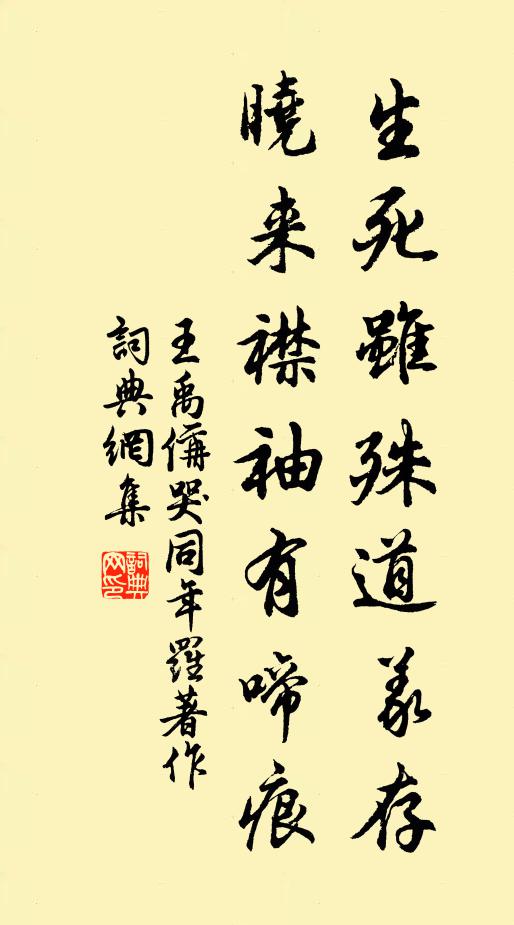 生死雖殊道義存
曉来襟袖有啼痕
王禹偁哭同年羅著作
詞典網集
詞典网印